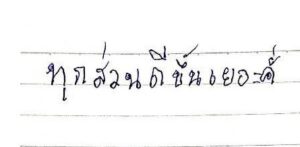 ทุกส่วนดีขึ้นเยอะค่ะ